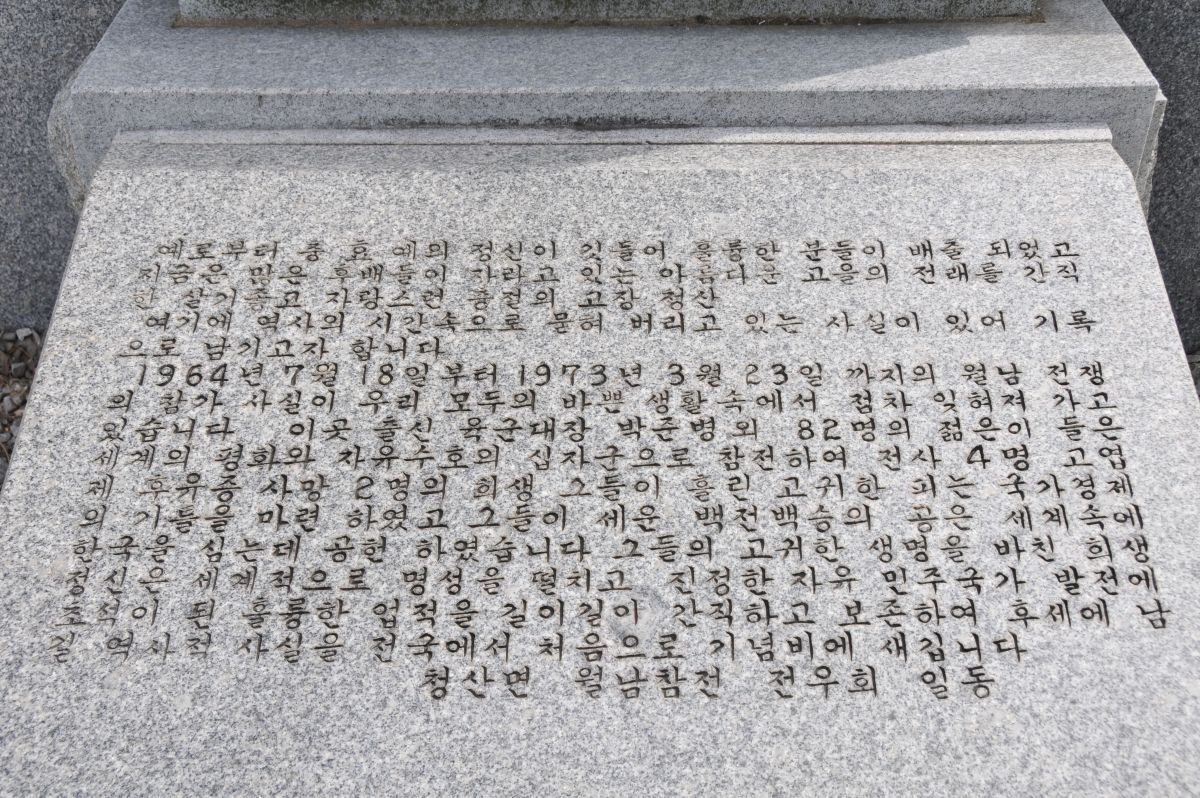 예로부터 충 효 예의 정신이 깃들어 훌륭한 분들이 배출 되었고
지금은 많은 후배들이 자라고 있는 아름다운 고을의 전래를 간직
한 살기좋고 자랑스런 충절의 고장 청산
여기에 역사의 시간속으로 묻혀 버리고 있는 사실이 있어 기록
으로 남기고자 합니다
1964년 7월 18일부터 1973년 3월 23일 까지의 월남 전쟁
의 참가 사실이 우리 모두의 바쁜 생활속에서 점차 잊혀져 가고
있습니다 이곳 출신 육군대장 박준병외 82명의 젊은이 들은
세계의 평화와 자유수호의 십자군으로 참전하여 전사 4명 고엽
제 후유증 사망 2명의 희생 그들이 흘린 고귀한 피는 국가경제
의 기틀을 마련 하였고 그들이 세운 백전백승의 공은 세계속에
한국을 심는데 공헌 하였습니다 그들의 고귀한 생명을 바친 희생
정신은 세계적으로 명성을 떨치고 진정한 자유 민주국가 발전에
초석이 된 훌륭한 업적을 길이길이 간직하고 보존하여 후세에 남
길 역사적 사실을 전국에서 처음으로 기념비에 새깁니다
청산면 월남참전 전우회 일동